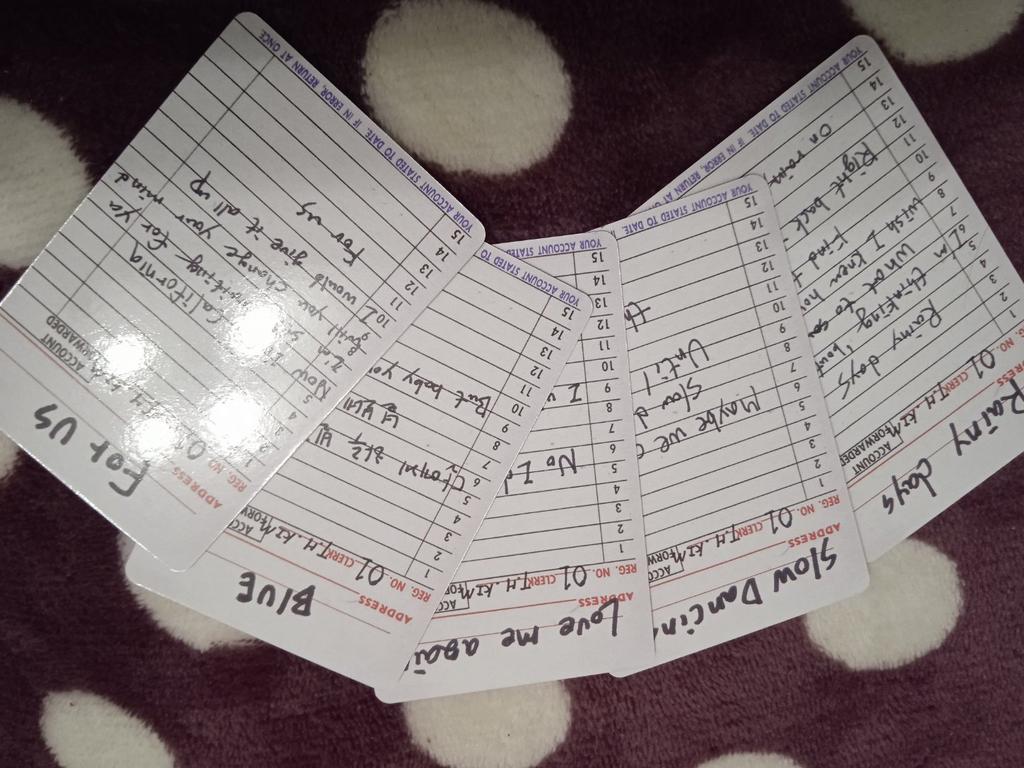 Rainy days
ADDRESS
REG. NO. 01 CLERK T.H.KIM
ACCOUNT FORWARDED
1
2
3
4
5
6
7
8
9
10
11
12
13
14
15
Rainy days
I'm thinking 'bout
What to say
wish I knew
Find
Right back
On rainy
YOUR ACCOUNT STATED TO DATE. IF IN ERROR, RETURN AT
Slow Dancin
ADDRESS
REG. NO. 01 CLERK T.H.KIM
1
2
3
4
5
6
7
8
9
10
11
12
13
14
15
Maybe we c
Slow d
Until
th
YOUR ACCOUNT STATED TO DATE. I
Love me agai
ADDRESS
REG. NO. 01 CLERK T.H.KIM
1
2
3
4
5
6
7
8
9
10
11
12
13
14
15
No I
I
YOUR ACCOUNT STATED TO
BLUE
ADDRESS
REG. NO. 01 CLERK T.H.KIM
1
2
3
4
5
6
7
8
9
10
11
12
13
14
15
But baby yo
YOUR ACCOUNT STATED TO
FOR US
ADDRESS
REG. NO. 0
ACCOUNT FORWARDED
1
2
4
5
10
11
12
13
14
15
California
Now I waiting for ya
until you change your mind
I would give it all up
For us
YOUR ACCOUNT STATED TO DATE. IF IN ERROR, RETURN AT ONCE.